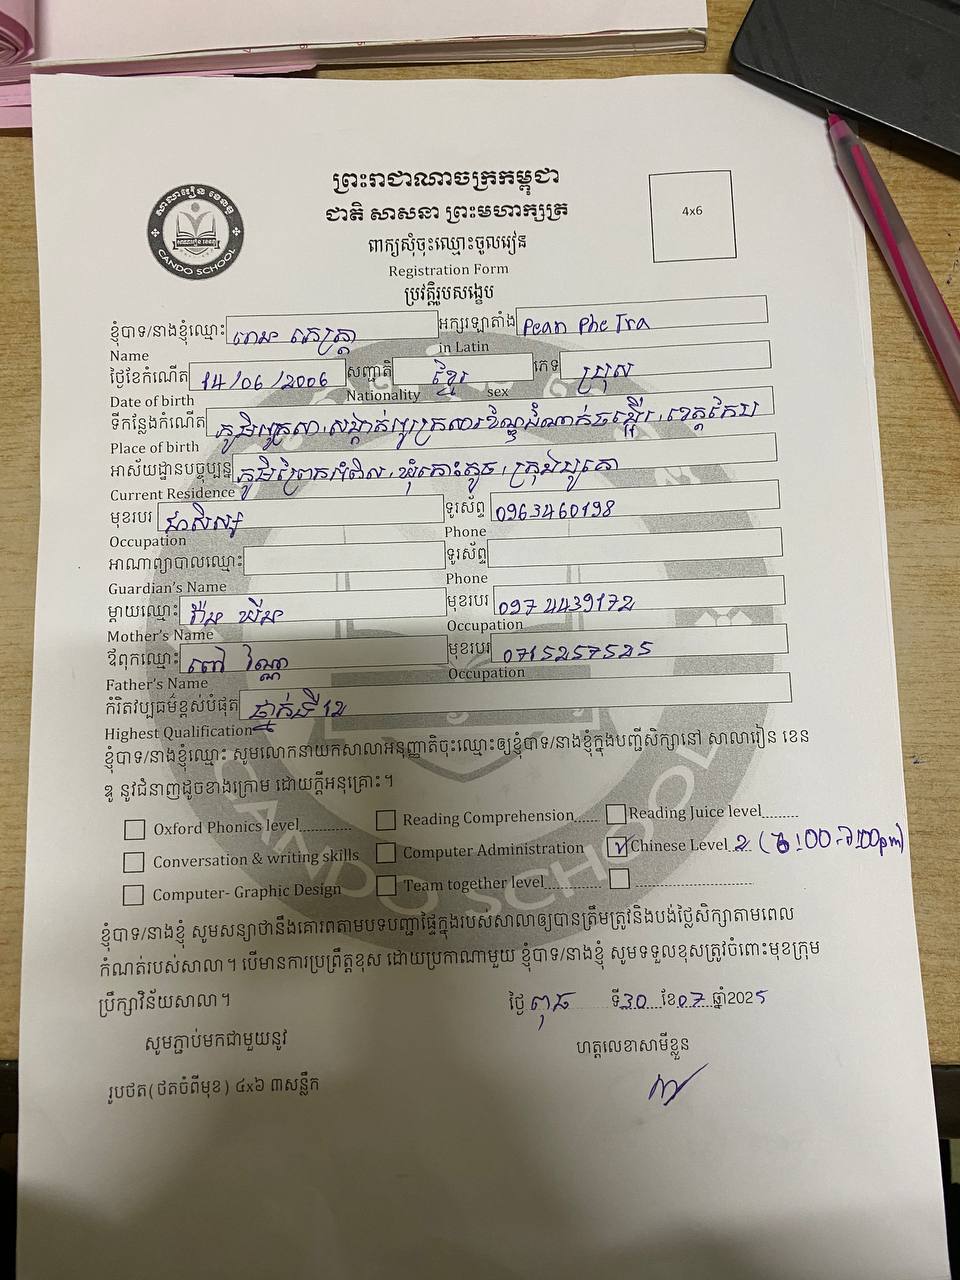 សាលារៀន ខេនឌូ
CANDO SCHOOL
ព្រះរាជាណាចក្រកម្ពុជា
ជាតិ សាសនា ព្រះមហាក្សត្រ
4x6
ពាក្យសុំចុះឈ្មោះចូលរៀន
Registration Form
ប្រវត្តិរូបសង្ខេប
ខ្ញុំបាទ/នាងខ្ញុំឈ្មោះ ភេត្រា អក្សរឡាតាំង Pean Phe Tra
Name in Latin
ថ្ងៃខែកំណើត 14/06/2006 សញ្ជាតិ ខ្មែរ ភេទ ប្រុស
Date of birth Nationality sex
ទីកន្លែងកំណើត ភូមិអូរក្រសា, សង្កាត់អូរក្រសារ ខណ្ឌដំណាក់ចង្អើរ, ខេត្តកែប
Place of birth
អាស័យដ្ឋានបច្ចុប្បន្ន ភូមិព្រែកអំពិល, ឃុំកោះតូច, ក្រុងបូគោ
Current Residence
មុខរបរ ជាសិស្ស ទូរស័ព្ទ 0963460198
Occupation Phone
អាណាព្យាបាលឈ្មោះ ទូរស័ព្ទ
Guardian's Name Phone
ម្តាយឈ្មោះ មុខរបរ 097 4439172
Mother's Name Occupation
ឪពុកឈ្មោះ ពៅ វណ្ណា មុខរបរ 0715257525
Father's Name Occupation
កំរិតវប្បធម៌ខ្ពស់បំផុត ថ្នាក់ទី 12
Highest Qualification
ខ្ញុំបាទ/នាងខ្ញុំឈ្មោះ សូមលោកនាយកសាលាអនុញ្ញាតិចុះឈ្មោះឲ្យខ្ញុំបាទ/នាងខ្ញុំក្នុងបញ្ជីសិក្សានៅ សាលារៀន ខេន
ឌូ នូវជំនាញដូចខាងក្រោម ដោយក្តីអនុគ្រោះ។
Oxford Phonics level............ Reading Comprehension...... Reading Juice level.........
Conversation & writing skills Computer Administration Chinese Level 2 (6:00-7:00pm)
Computer- Graphic Design Team together level............. ..............................
ខ្ញុំបាទ/នាងខ្ញុំ សូមសន្យាថានឹងគោរពតាមបទបញ្ជាផ្ទៃក្នុងរបស់សាលាឲ្យបានត្រឹមត្រូវនិងបង់ថ្លៃសិក្សាតាមពេល
កំណត់របស់សាលា។ បើមានការប្រព្រឹត្តខុស ដោយប្រកាណាមួយ ខ្ញុំបាទ/នាងខ្ញុំ សូមទទួលខុសត្រូវចំពោះមុខក្រុម
ប្រឹក្សាវិន័យសាលា។
ថ្ងៃ ពុធ ទី 30 ខែ 07 ឆ្នាំ 2025
សូមភ្ជាប់មកជាមួយនូវ ហត្ថលេខាសាមីខ្លួន
រូបថត(ថតចំពីមុខ) ៤x៦ ៣សន្លឹក